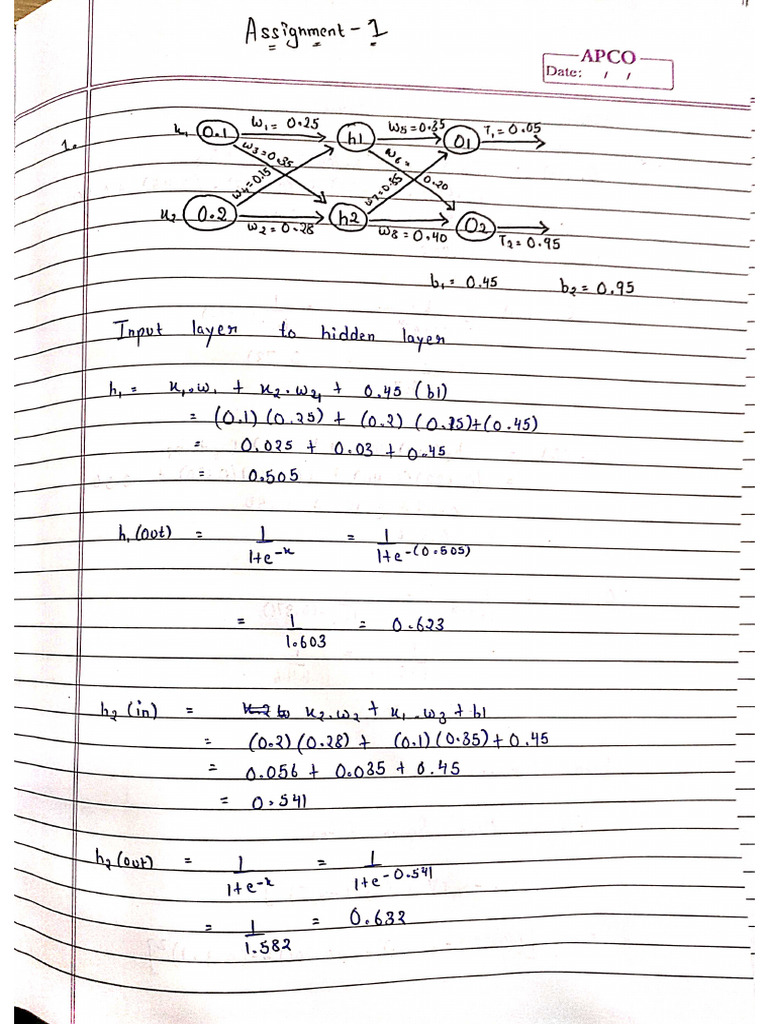 Assignment - 1
APCO
Date: / /
1.
x₁ 0.1 w₁ = 0.25 h1 w₅ = 0.35 O1 T₁ = 0.05
w₃ = 0.35 w₆ = 0.20
w₄ = 0.15 w₇ = 0.55
x₂ 0.2 w₂ = 0.28 h2 w₈ = 0.40 O2 T₂ = 0.95
b₁ = 0.45 b₂ = 0.95
Input layer to hidden layer
h₁ = x₁.w₁ + x₂.w₄ + 0.45 (b1)
= (0.1) (0.25) + (0.2) (0.15) + (0.45)
= 0.025 + 0.03 + 0.45
= 0.505
h₁ (out) = 1/(1+e^-x) = 1/(1+e^-(0.505))
= 1/1.603 = 0.623
h₂ (in) = x₂.w₂ + x₁.w₃ + b1
= (0.2) (0.28) + (0.1) (0.35) + 0.45
= 0.056 + 0.035 + 0.45
= 0.541
h₂ (out) = 1/(1+e^-x) = 1/(1+e^-0.541)
= 1/1.582 = 0.632